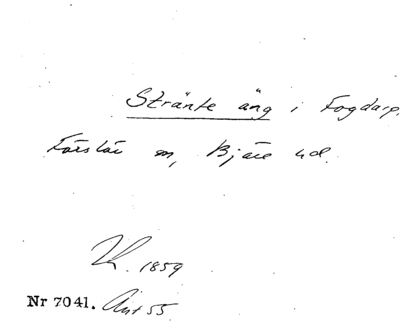 Stränte äng i Fogdarp.
Förslöv sn, Bjäre hd.
1859
Nr 7041. Ant 55